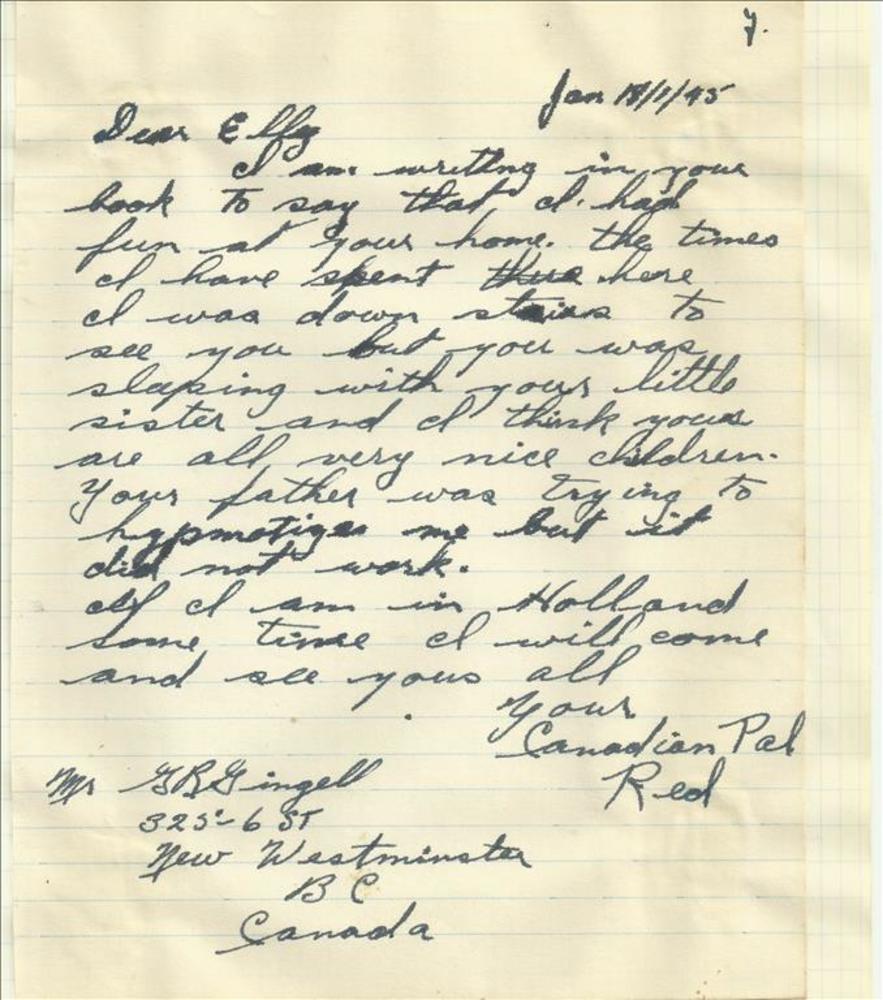 7.
Jan 18/1/45
Dear Elly
I am writtng in your
book to say that I. had
fun at your home. the times
I have spent here
I was down stairs to
see you but you was
sleeping with your little
sister and I think yous
are all very nice children.
Your father was trying to
hypmotize me but it
did not work.
If I am in Holland
some time I will come
and see yous all
Your
Canadian Pal
Red
Mr G R Gingell
325-6 ST
New Westminster
B C
Canada